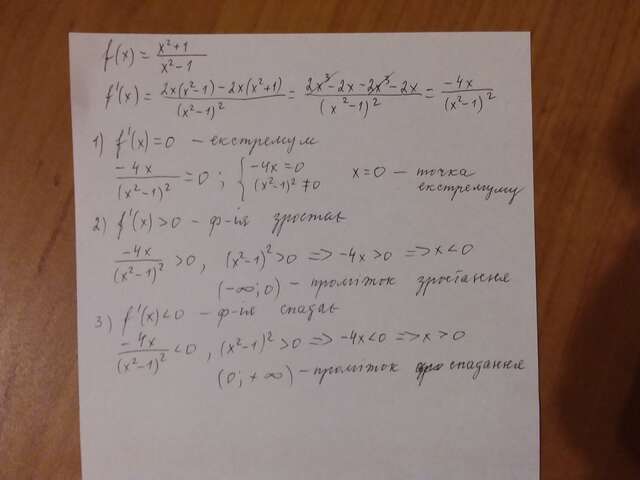 f(x) = (x²+1)/(x²-1)
f'(x) = (2x(x²-1) - 2x(x²+1))/(x²-1)² = (2x³-2x-2x³-2x)/(x²-1)² = (-4x)/(x²-1)²
1) f'(x)=0 - екстремум
(-4x)/(x²-1)² = 0 ; { -4x=0 (x²-1)² ≠0 x=0 - точка екстремуму
2) f'(x)>0 - ф-ія зростає
(-4x)/(x²-1)² >0, (x²-1)²>0 => -4x>0 => x<0
(-∞; 0) - проміжок зростання
3) f'(x)<0 - ф-ія спадає
(-4x)/(x²-1)² <0, (x²-1)²>0 => -4x<0 => x>0
(0; +∞) - проміжок спадання